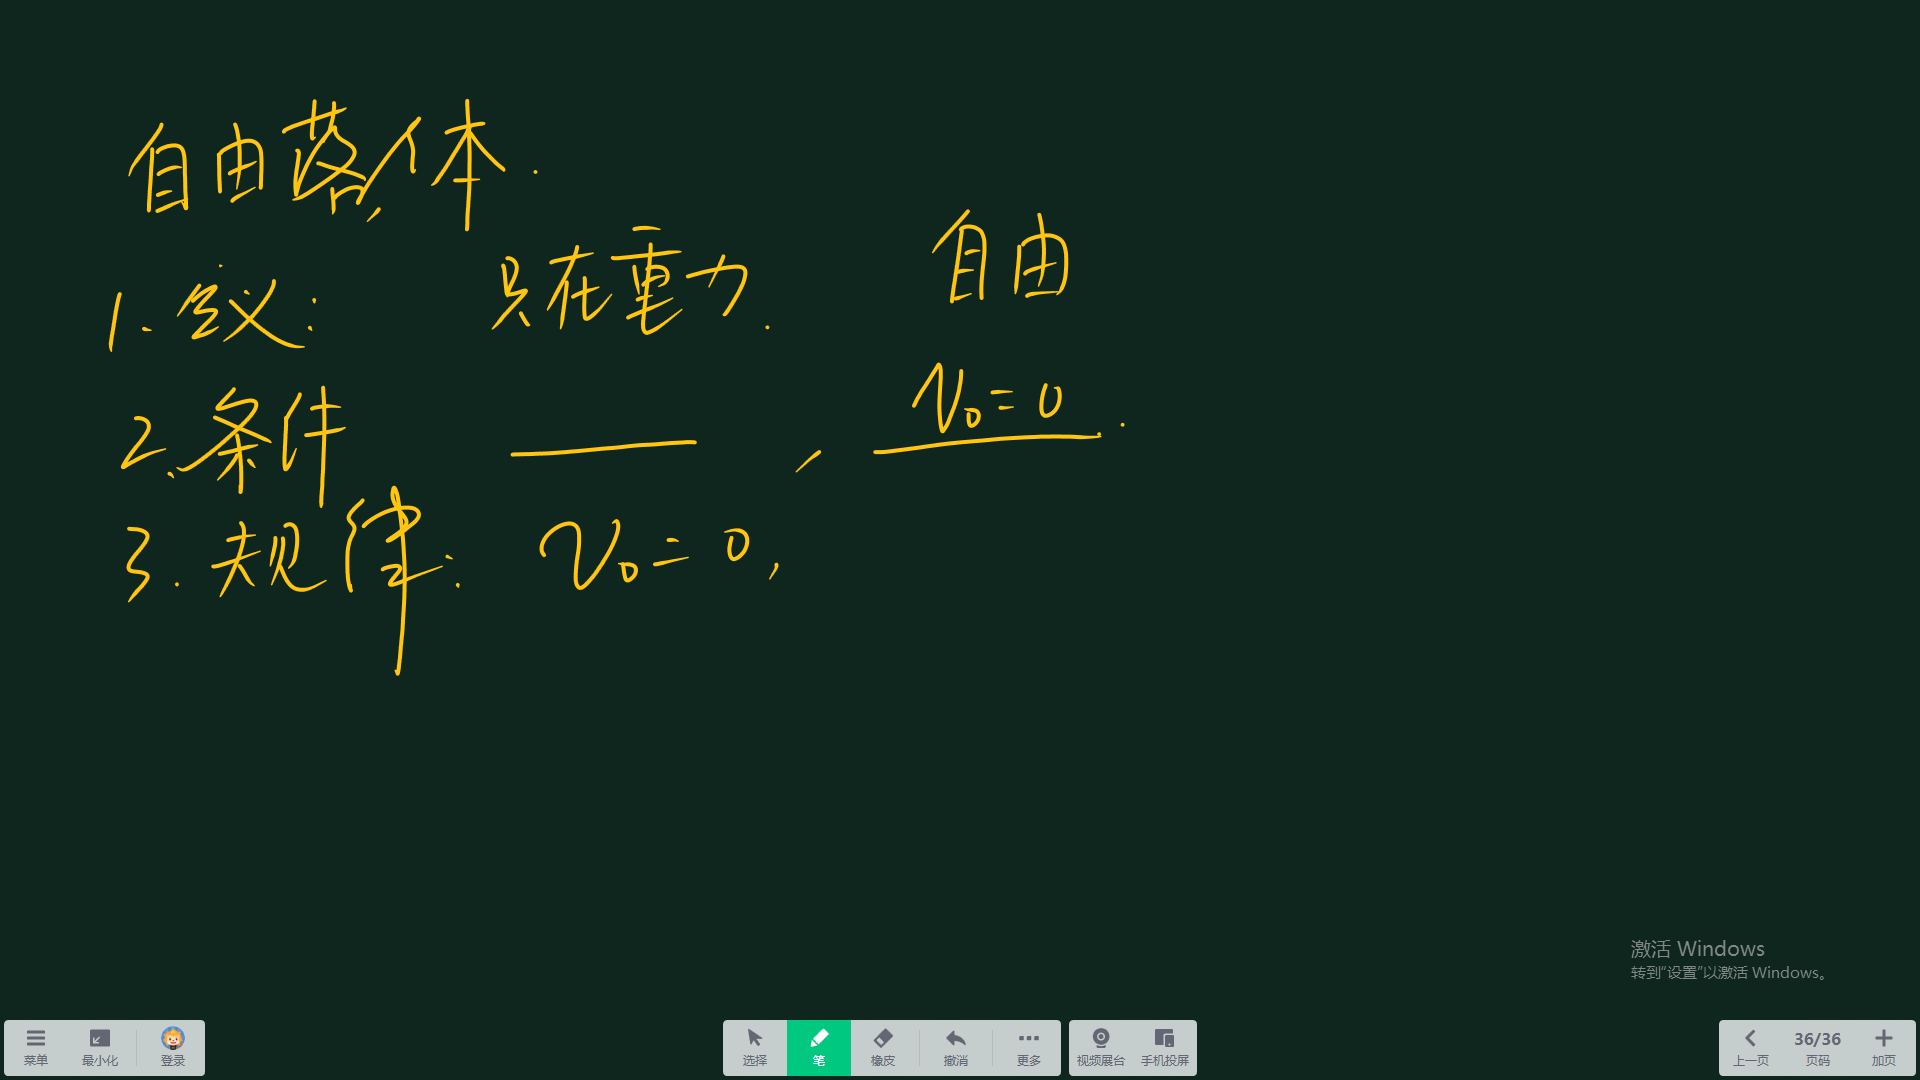 自由落体.
1. 定义: 只在重力. 自由
2. 条件 ____, v₀=0.
3. 规律: v₀=0,
激活 Windows
转到“设置”以激活 Windows。
菜单 最小化 登录 选择 笔 橡皮 撤消 更多 视频展台 手机投屏 上一页 36/36 页码 加页